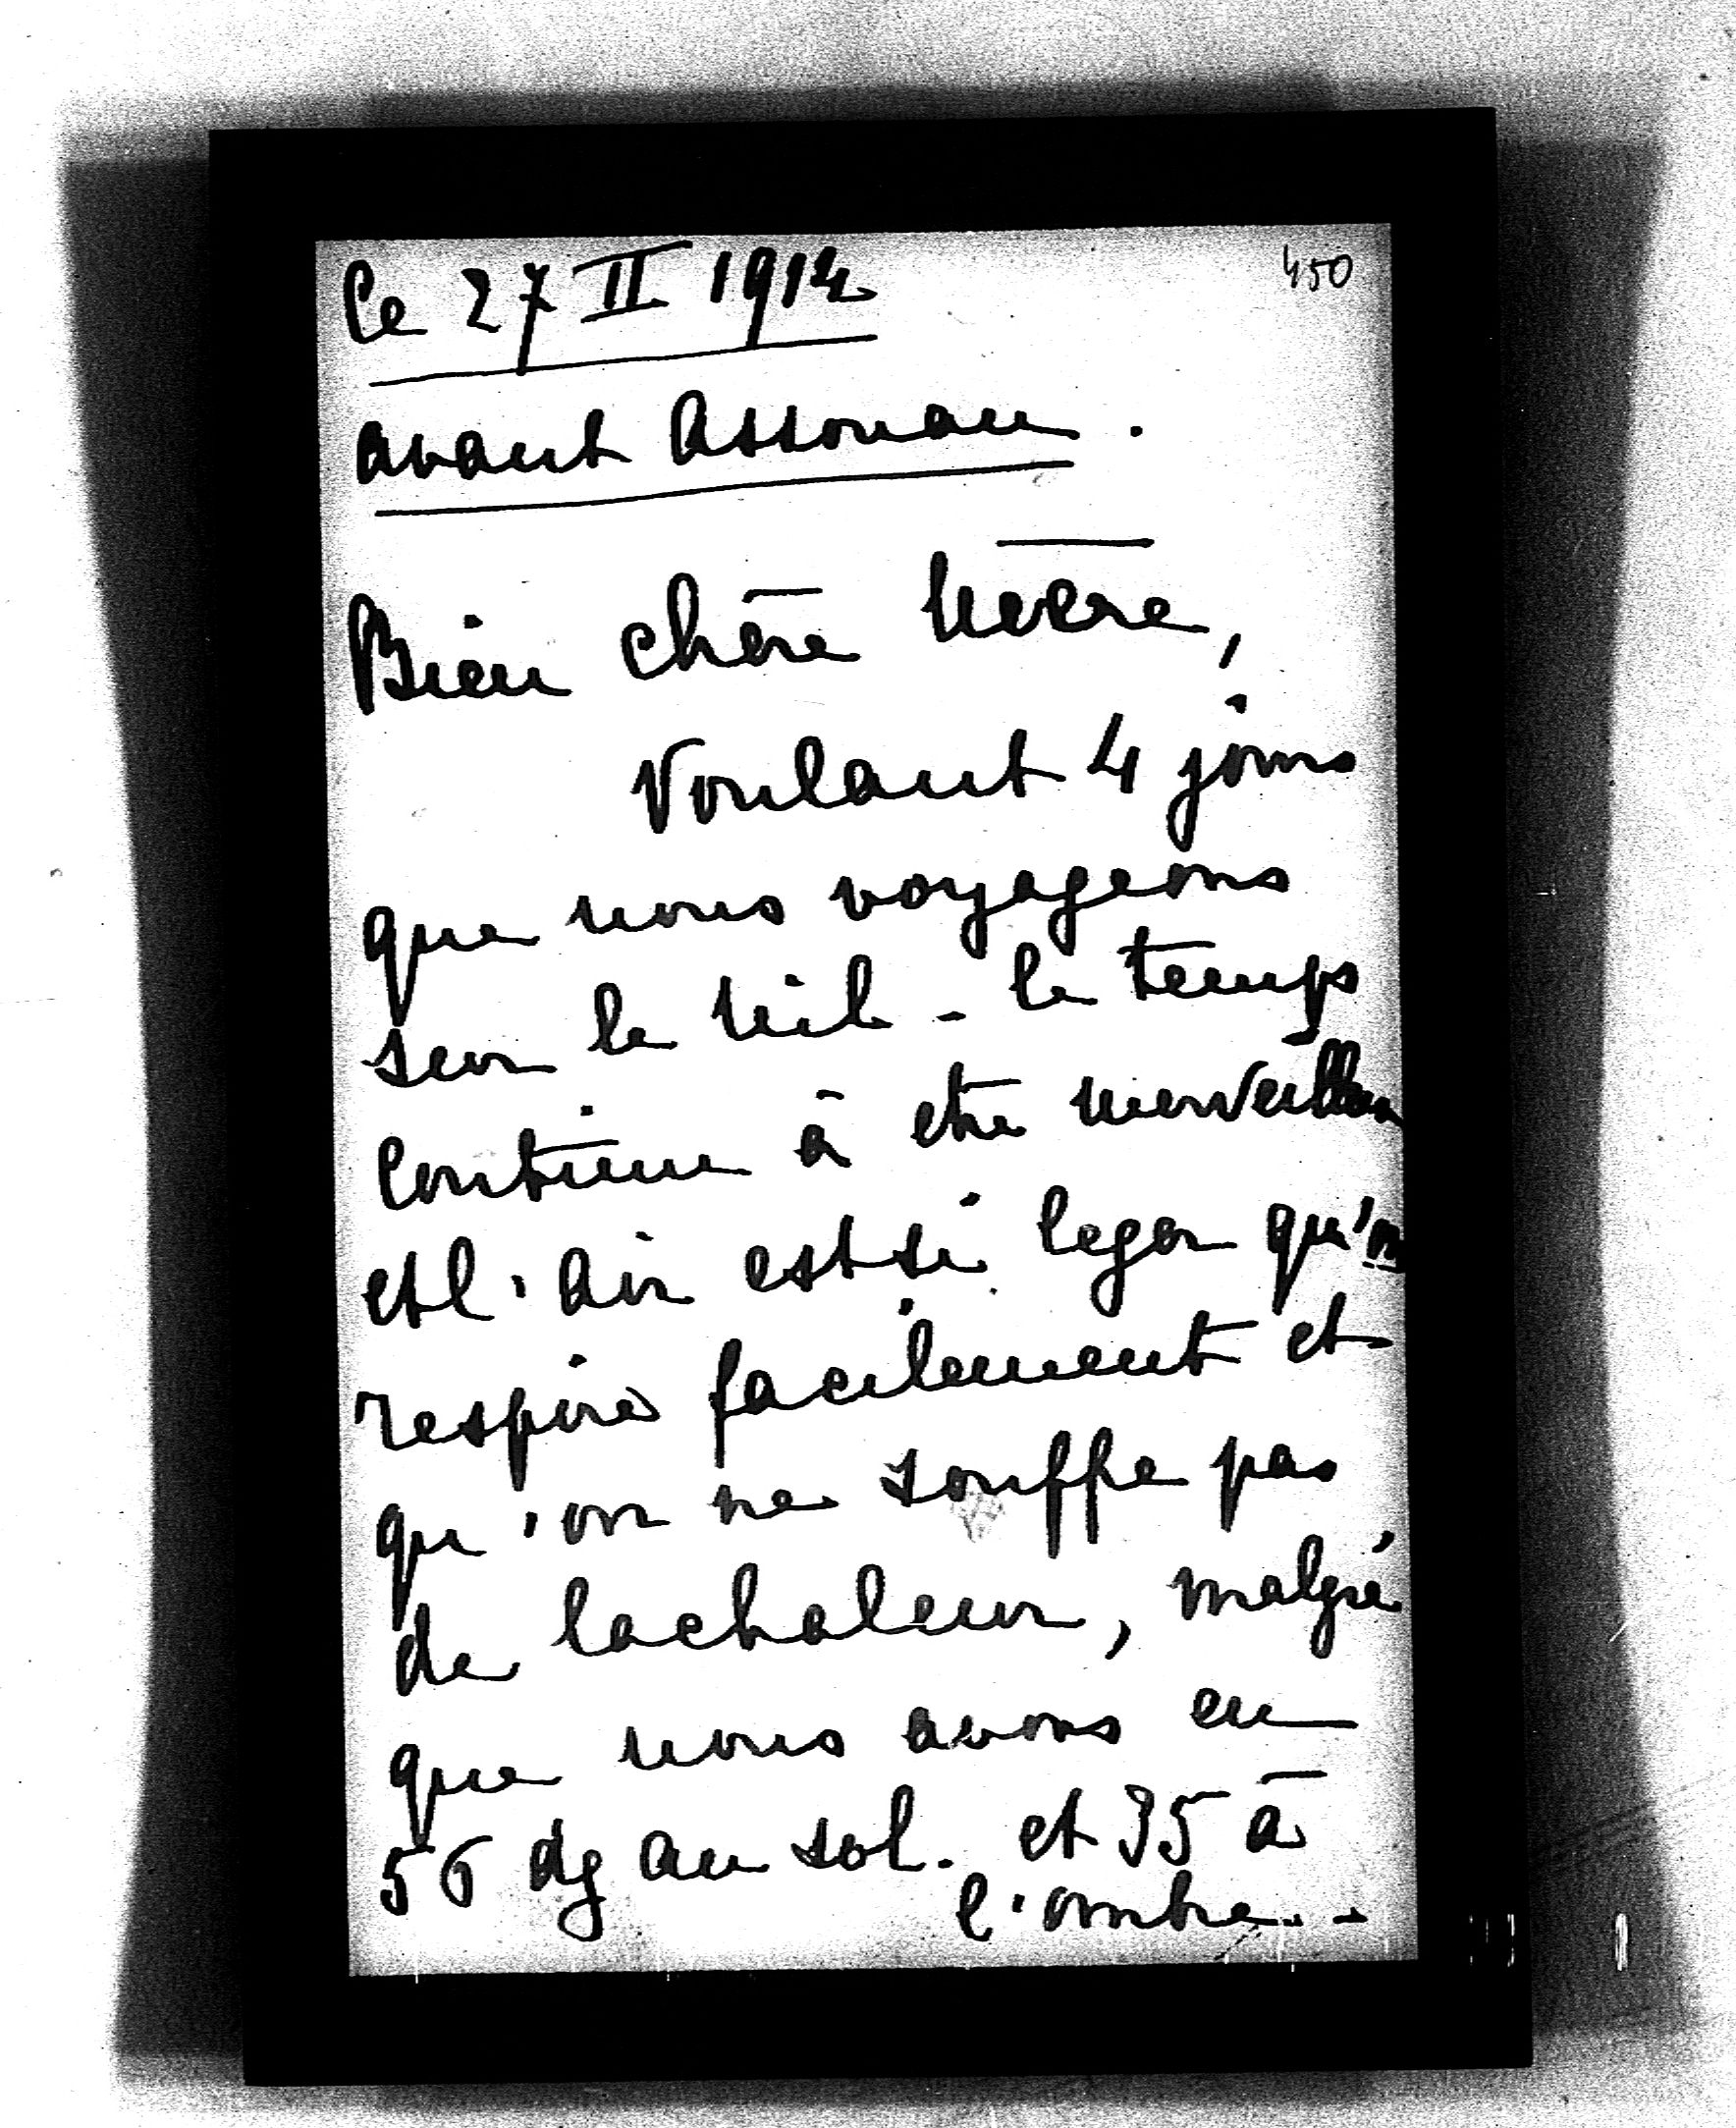 450
Le 27 II 1914
avant Assouan.
Bien chère Mère,
Voulant 4 jours
que nous voyageons
sur le Nil - le temps
continue à etre merveilleux
et l'air est si leger qu'on
respire facilement et
qu'on ne souffre pas
de la chaleur, malgré
que nous avons eu
56 dg au sol. et 35 à
l'ombre...